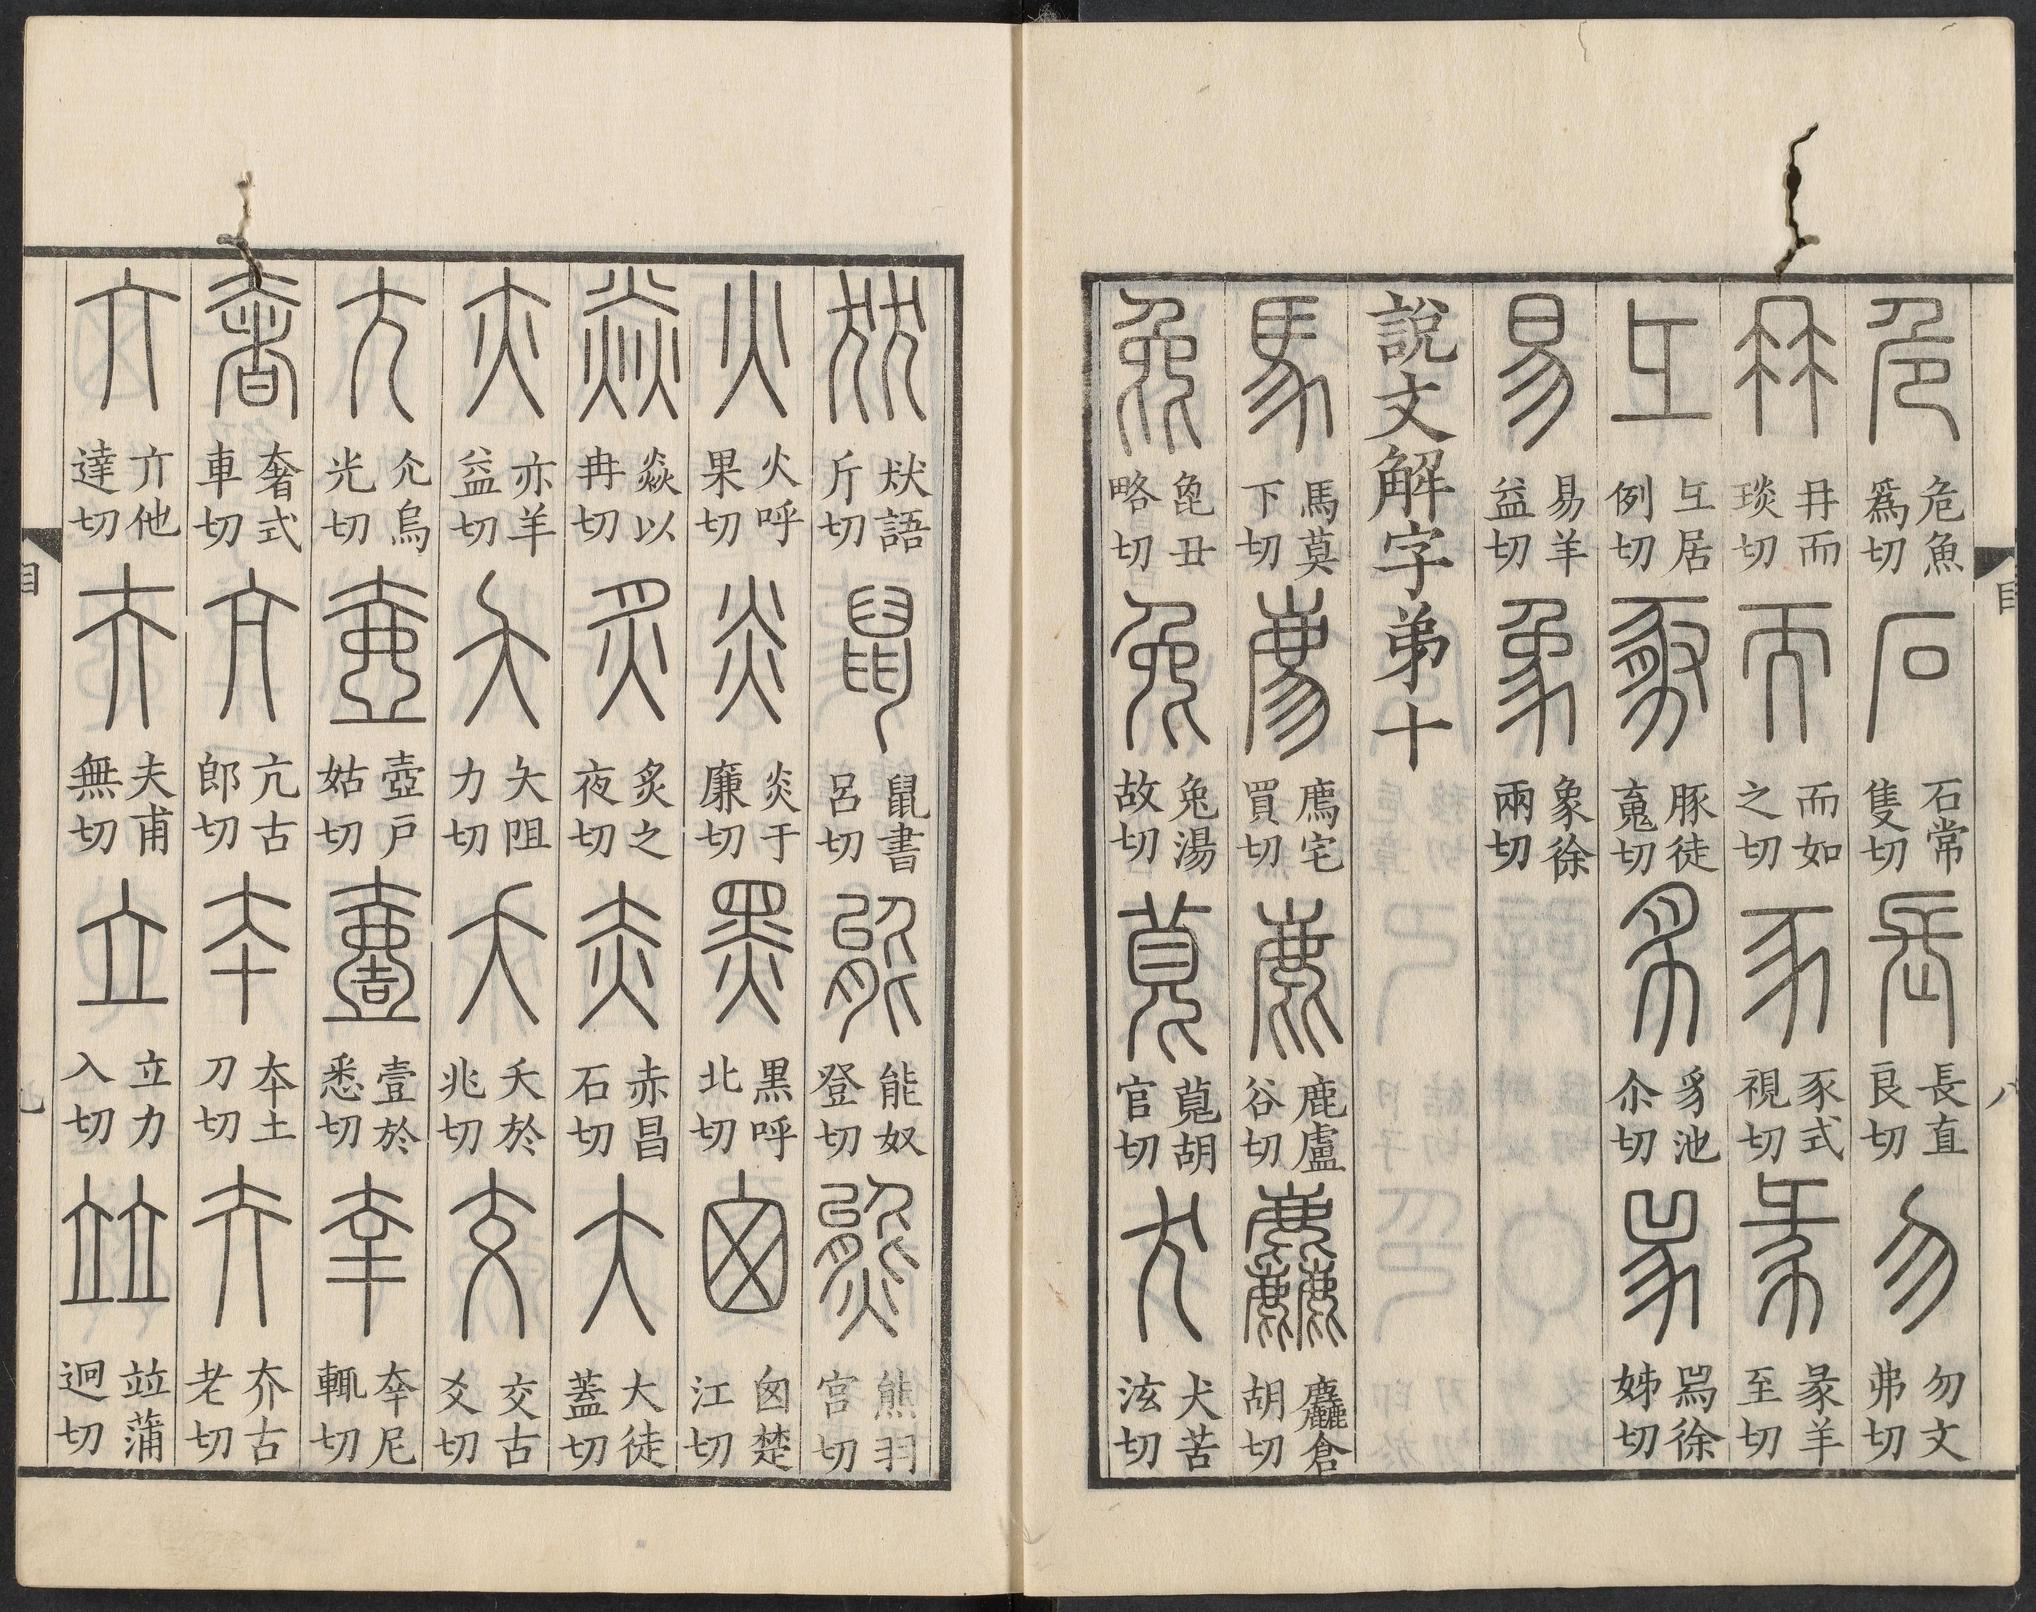 危魚爲切 石常隻切 長直良切 勿文弗切
冄而琰切 而如之切 豕式視切 㣇羊至切
彑居例切 豚徒䰟切 豸池尒切 𤉡徐姊切
易羊益切 象徐兩切
說文解字弟十
馬莫下切 廌宅買切 鹿盧谷切 麤倉胡切
㲋丑略切 兔湯故切 萈胡官切 犬苦泫切
㹜語斤切 鼠書呂切 能奴登切 熊羽宫切
火呼果切 炎于廉切 黒呼北切 囱楚江切
焱以冄切 炙之夜切 赤昌石切 大徒蓋切
亦羊益切 夨阻力切 夭於兆切 交古爻切
尣烏光切 壺戸姑切 壹於悉切 㚔尼輒切
奢式車切 亢古郎切 夲土刀切 夰古老切
亣他達切 夫甫無切 立力入切 竝蒲迥切